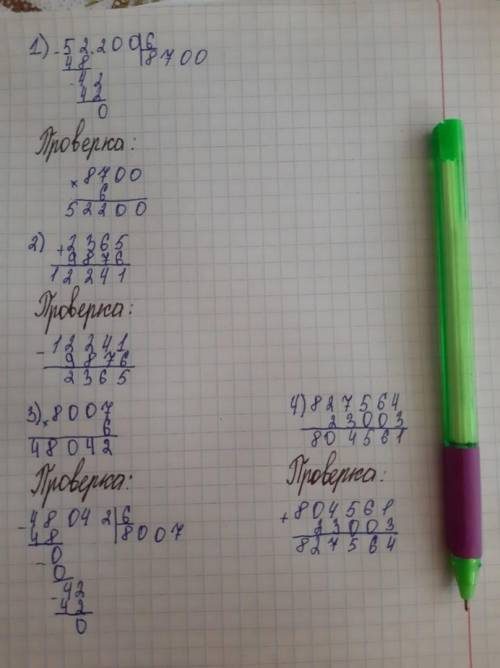 1) - 52200 6
48 8700
- 42
42
0
Проверка:
× 8700
6
52200
2) + 2365
9876
12241
Проверка:
- 12241
9876
2365
3) × 8007
6
48042
Проверка:
- 48042 6
48 8007
- 0
0
- 42
42
0
4) 827564
23003
804561
Проверка:
+ 804561
23003
827564